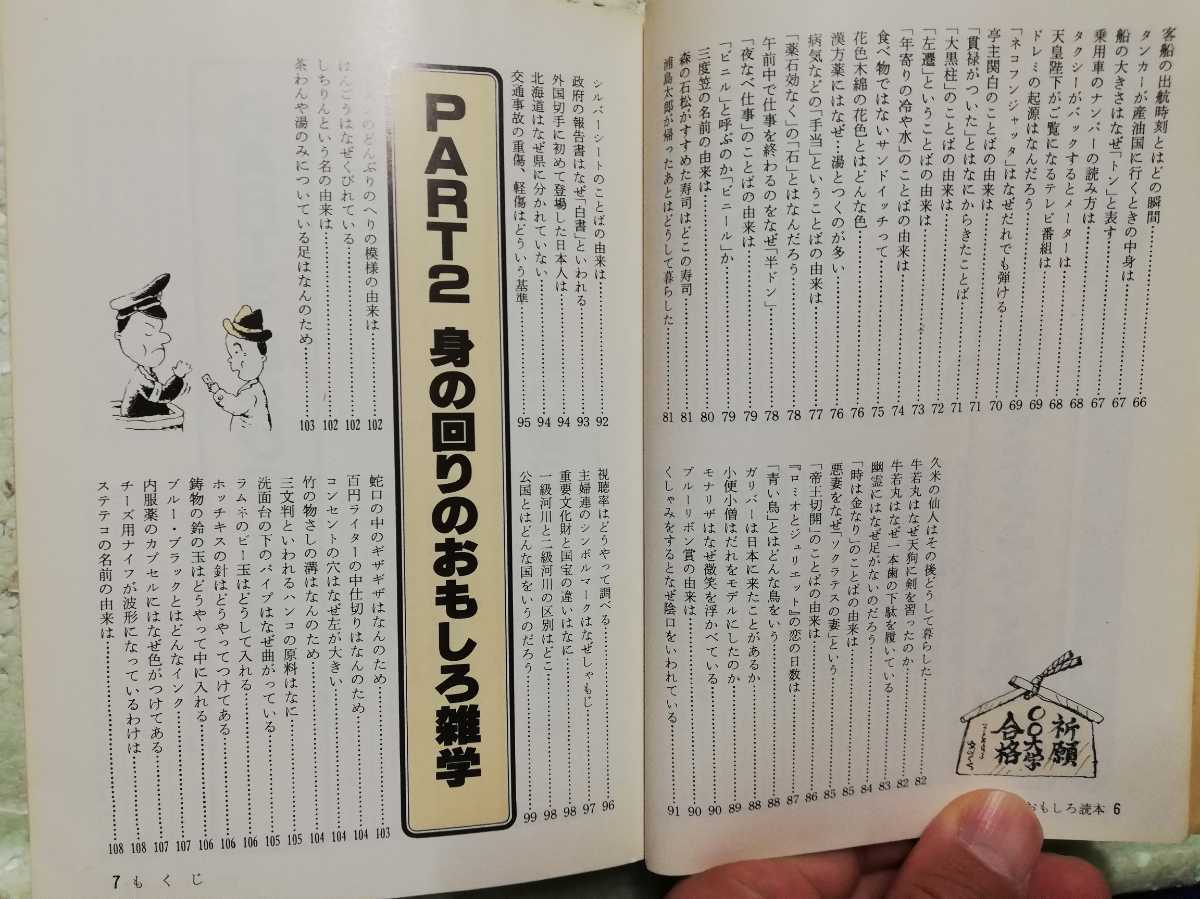 客船の出航時刻とはどの瞬間……66
タンカーが産油国に行くときの中身は……67
船の大きさはなぜ「トン」と表す……67
乗用車のナンバーの読み方は……68
タクシーがバックするとメーターは……68
天皇陛下がご覧になるテレビ番組は……69
ドレミの起源はなんだろう……69
「ネコフンジャッタ」はなぜだれでも弾ける……70
亭主関白のことばの由来は……71
「貫禄がついた」とはなにからきたことば……71
「大黒柱」のことばの由来は……72
「左遷」ということばの由来は……73
「年寄りの冷や水」のことばの由来は……74
食べ物ではないサンドイッチって……75
花色木綿の花色とはどんな色……76
漢方薬にはなぜ…湯とつくのが多い……76
病気などの「手当」ということばの由来は……77
「薬石効なく」の「石」とはなんだろう……78
午前中で仕事を終わるのをなぜ「半ドン」……78
「夜なべ仕事」のことばの由来は……79
「ビニル」と呼ぶのか「ビニール」か……79
三度笠の名前の由来は……80
森の石松がすすめた寿司はどこの寿司……81
浦島太郎が帰ったあとはどうして暮らした……81
久米の仙人はその後どうして暮らした……82
牛若丸はなぜ天狗に剣を習ったのか……82
牛若丸はなぜ一本歯の下駄を履いている……83
幽霊にはなぜ足がないのだろう……84
「時は金なり」のことばの由来は……85
悪妻をなぜ「ソクラテスの妻」という……85
「帝王切開」のことばの由来は……86
『ロミオとジュリエット』の恋の日数は……87
「青い鳥」とはどんな鳥をいう……88
ガリバーは日本に来たことがあるか……88
小便小僧はだれをモデルにしたのか……89
モナリザはなぜ微笑を浮かべている……90
ブルーリボン賞の由来は……90
くしゃみをするとなぜ陰口をいわれている……91
祈願
〇〇大学
合格
おもしろ読本 6
シルバーシートのことばの由来は……92
政府の報告書はなぜ「白書」といわれる……93
外国切手に初めて登場した日本人は……94
北海道はなぜ県に分かれていない……94
交通事故の重傷、軽傷はどういう基準……95
視聴率はどうやって調べる……96
主婦連のシンボルマークはなぜしゃもじ……97
重要文化財と国宝の違いはなに……98
一級河川と二級河川の区別はどこ……98
公国とはどんな国をいうのだろう……99
PART2 身の回りのおもしろ雑学
のどんぶりのへりの模様の由来は……102
はんごうはなぜくびれている……102
しちりんという名の由来は……102
茶わんや湯のみについている足はなんのため……103
蛇口の中のギザギザはなんのため……103
百円ライターの中仕切りはなんのため……104
コンセントの穴はなぜ左が大きい……104
竹の物さしの溝はなんのため……104
三文判といわれるハンコの原料はなに……105
洗面台の下のパイプはなぜ曲がっている……105
ラムネのビー玉はどうして入れる……106
ホッチキスの針はどうやってつけてある……106
鋳物の鈴の玉はどうやって中に入れる……106
ブルー・ブラックとはどんなインク……107
内服薬のカプセルにはなぜ色がつけてある……107
チーズ用ナイフが波形になっているわけは……108
ステテコの名前の由来は……108
7 もくじ